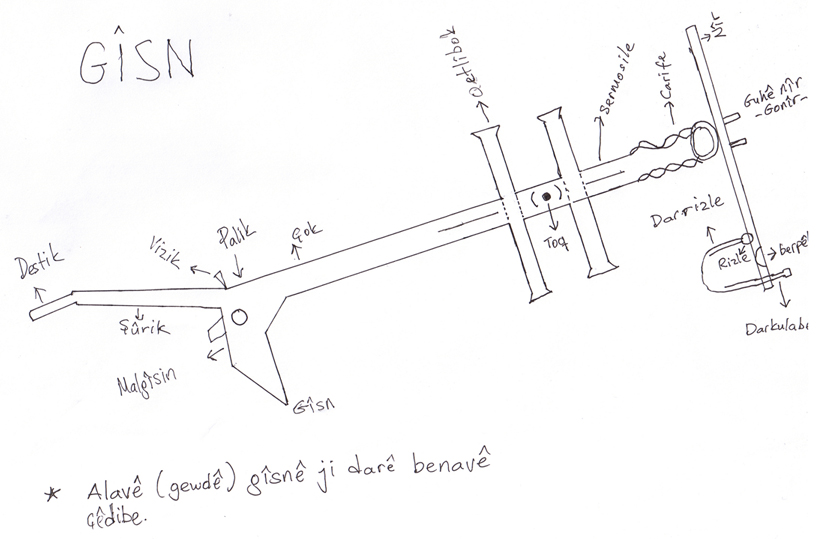 GÎSN
Destik
Şûrik
Vizik
Palik
Çok
Malgîsin
Gîsn
Qetlibok
Toq
Sermosile
Carife
Guhê nîr
-Gonîr-
Darrizle
Rizle
berpê
Darkulabe
* Alavê (gewdê) gîsnê ji darê benavê
çêdibe.